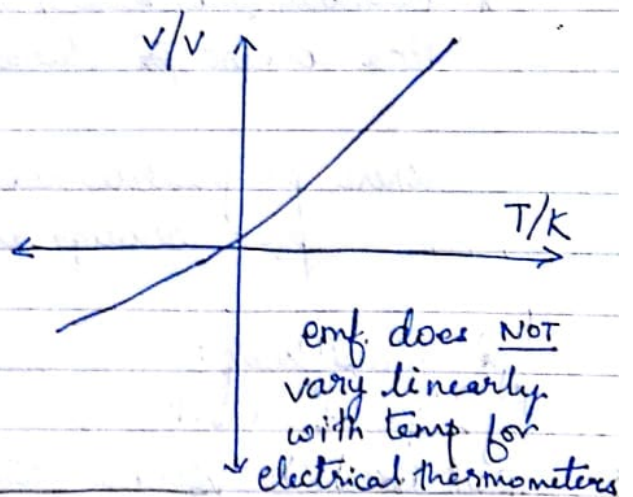 V/V
T/K
emf. does NOT
vary linearly
with temp. for
electrical thermometers